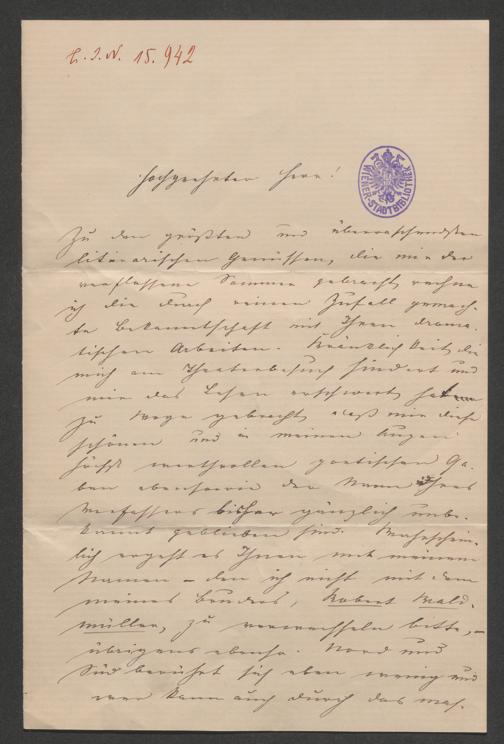 H. I. N. 15.942
WIENER-STADTBIBLIOTHEK
Hochgeehrter Herr!
Zu den größten und überraschendsten
literarischen Genüssen, die mir der
verflossene Sommer gebracht, rechne
ich die durch reinen Zufall gemach-
te Bekanntschaft mit Ihren drama-
tischen Arbeiten. Kränklichkeit, die
mich am Theaterbesuch hindert und
mir das Lesen erschwert, hat
zu Wege gebracht, daß mir diese
schönen und in meinen Augen
höchst werthvollen poetischen Ga-
ben ebensowie der Name Ihres
Verfassers bisher gänzlich unbe-
kannt geblieben sind. Wahrschein-
lich ergeht es Ihnen mit meinem
Namen – den ich nicht mit dem
meines Bruders, Robert Wald-
müller, zu verwechseln bitte, –
übrigens ebenso. Nord und
Süd berührt sich eben wenig und
wer kann auch durch das mas-